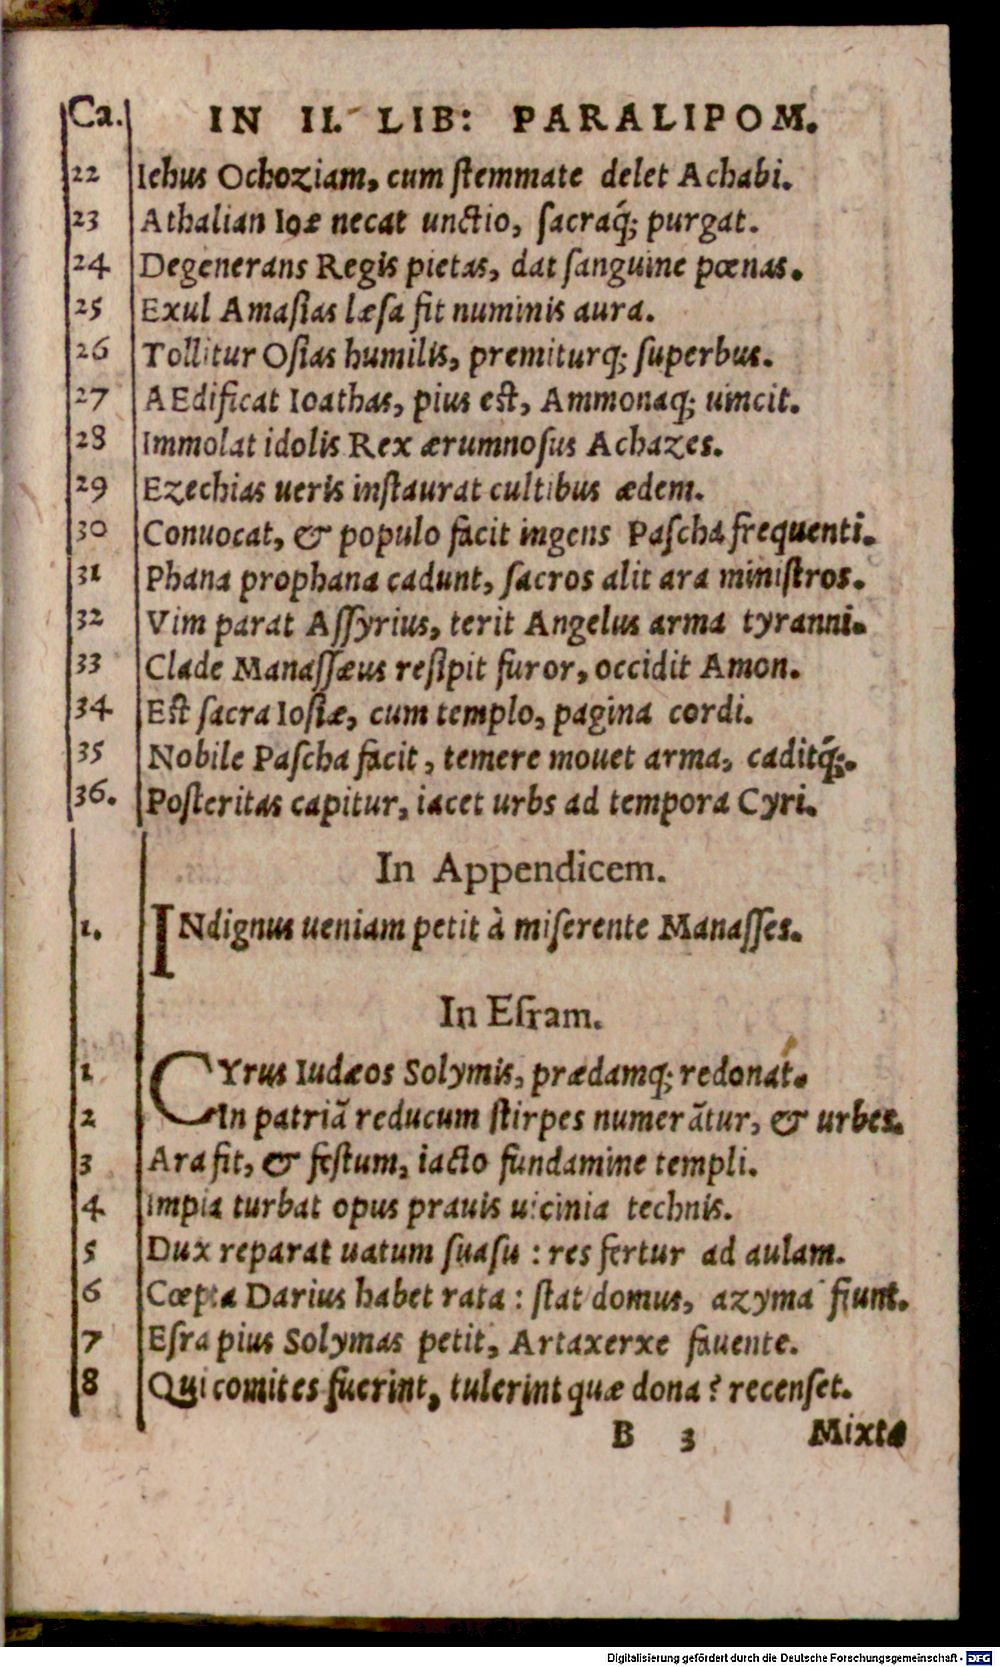 Ca. IN II. LIB: PARALIPOM.
22 Iehus Ochoziam, cum ſtemmate delet Achabi.
23 Athalian Ioæ necat unctio, ſacraq́; purgat.
24 Degenerans Regis pietas, dat ſanguine pœnas.
25 Exul Amaſias læſa fit numinis aura.
26 Tollitur Oſias humilis, premiturq; ſuperbus.
27 AEdificat Ioathas, pius eſt, Ammonaq; uincit.
28 Immolat idolis Rex ærumnoſus Achazes.
29 Ezechias ueris inſtaurat cultibus ædem.
30 Conuocat, & populo facit ingens Paſcha frequenti.
31 Phana prophana cadunt, ſacros alit ara miniſtros.
32 Vim parat Aſſyrius, terit Angelus arma tyranni.
33 Clade Manaſſæus reſipit furor, occidit Amon.
34 Eſt ſacra Ioſiæ, cum templo, pagina cordi.
35 Nobile Paſcha facit, temere mouet arma, caditq́;.
36. Poſteritas capitur, iacet urbs ad tempora Cyri.
In Appendicem.
1. INdignus ueniam petit à miſerente Manaſſes.
In Eſram.
1 CYrus Iudæos Solymis, prædamq; redonat.
2 In patriã reducum ſtirpes numerãtur, & urbes.
3 Ara fit, & feſtum, iacto fundamine templi.
4 Impia turbat opus prauis uicinia technis.
5 Dux reparat uatum ſuaſu : res fertur ad aulam.
6 Cœpta Darius habet rata : ſtat domus, azyma fiunt.
7 Eſra pius Solymas petit, Artaxerxe fauente.
8 Qui comites fuerint, tulerint quæ dona? recenſet.
B 3 Mixta
Digitalisierung gefördert durch die Deutsche Forschungsgemeinschaft - DFG